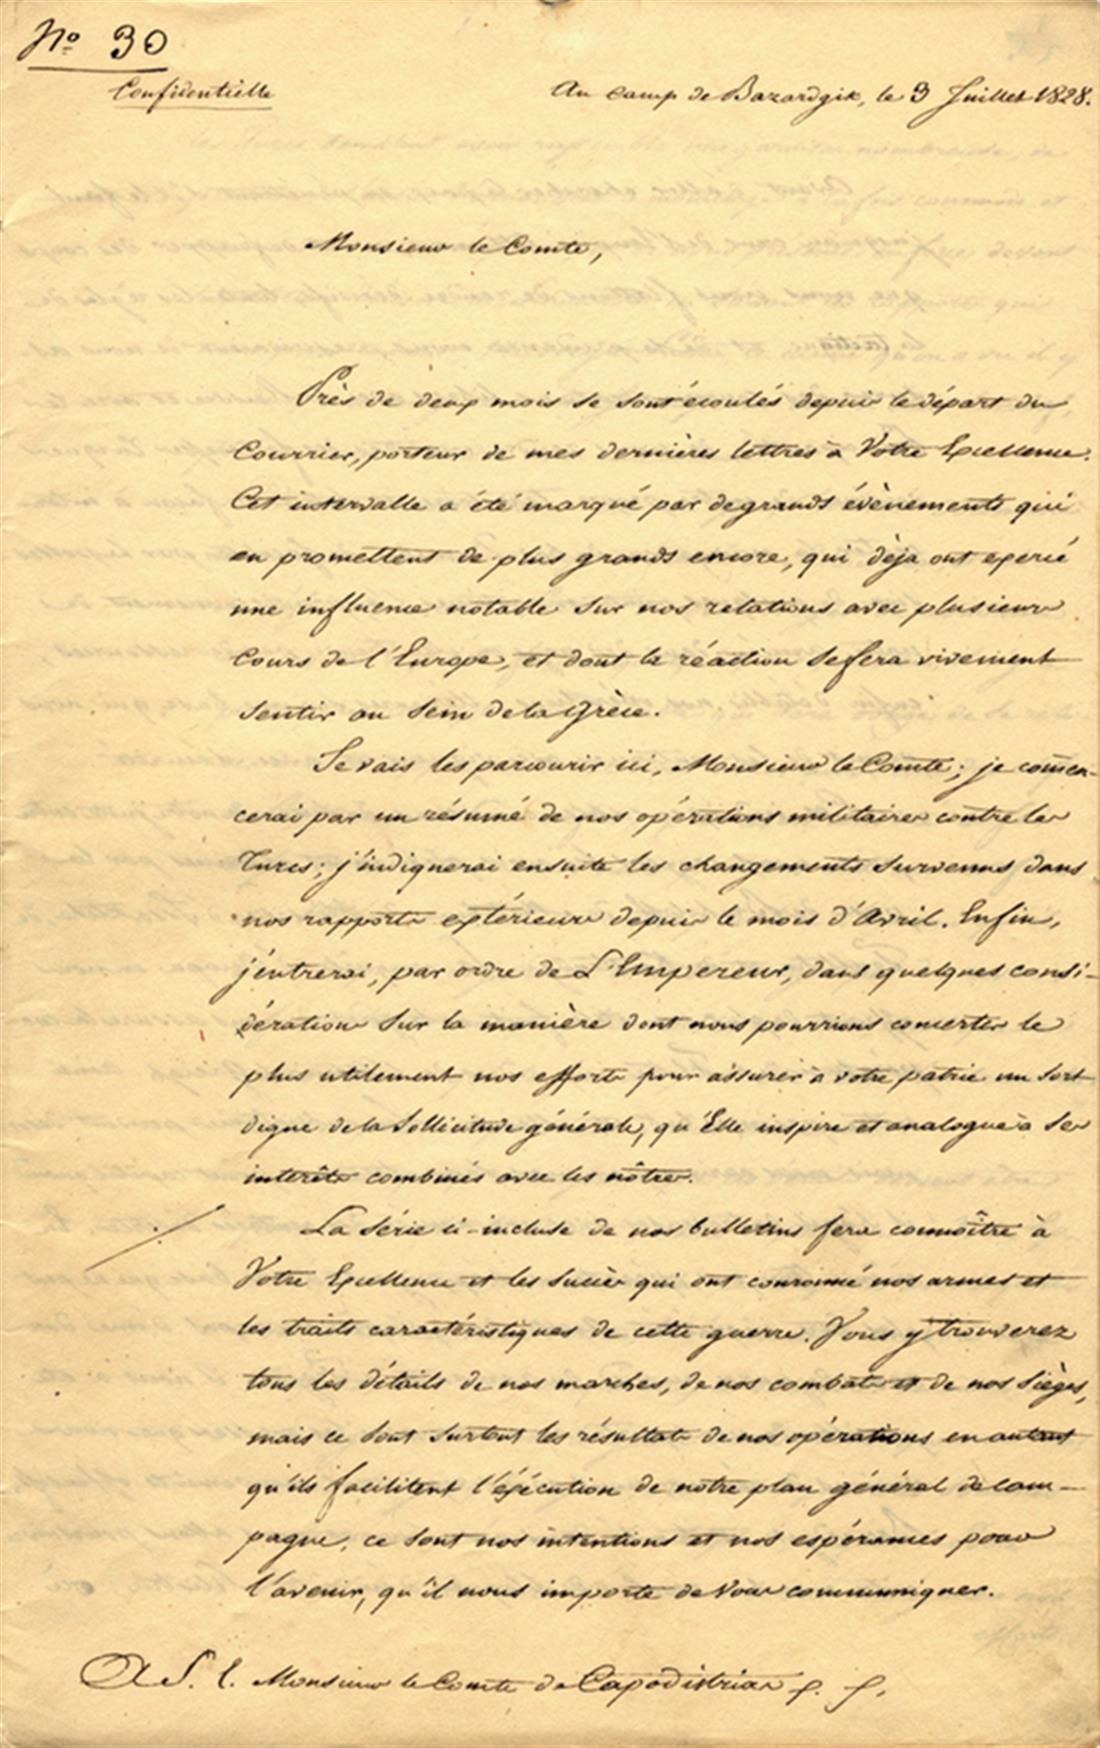 No 30
Confidentielle
Au camp de Bazardgik, le 3 Juillet 1828.
Monsieur le Comte,
Près de deux mois se sont écoulés depuis le départ du
Courrier, porteur de mes dernières lettres à Votre Excellence.
Cet intervalle a été marqué par de grands évènements qui
en promettent de plus grands encore, qui dèja ont exercé
une influence notable sur nos relations avec plusieurs
Cours de l'Europe, et dont la réaction se fera vivement
sentir au sein de la Grèce.
Je vais les parcourir ici, Monsieur le Comte; je comen-
cerai par un résumé de nos opérations militaires contre les
Turcs; j'indiquerai ensuite les changements survenus dans
nos rapports extérieurs depuis le mois d'Avril. Enfin,
j'entrerai, par ordre de L'Empereur, dans quelques consi-
dérations sur la manière dont nous pourrions concerter le
plus utilement nos efforts pour assurer à votre patrie un sort
digne de la sollicitude générale, qu'Elle inspire et analogue à ses
interêts combinés avec les nôtres.
La série ci-incluse de nos bulletins fera connoître à
Votre Excellence et les succès qui ont couronné nos armes et
les traits caractéristiques de cette guerre. Vous y trouverez
tous les détails de nos marches, de nos combats et de nos sièges,
mais ce sont surtout les résultats de nos opérations en autant
qu'ils facilitent l'éxécution de notre plan général de cam-
pagne, ce sont nos intentions et nos espérances pour
l'avenir, qu'il nous importe de Vous communiquer.
A S. E. Monsieur le Comte de Capodistrias